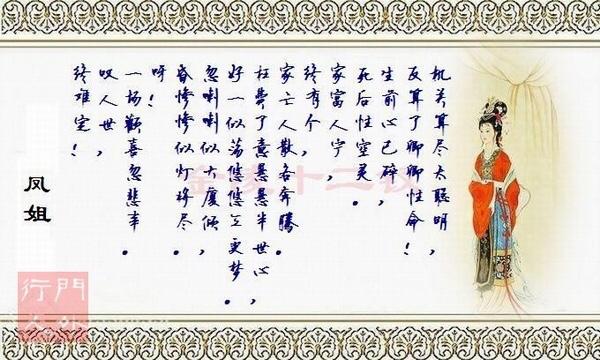 机关算尽太聪明,
反算了卿卿性命!
生前心已碎,
死后性空灵。
家富人宁,
终有个,
家亡人散各奔腾。
枉费了意悬悬半世心,
好一似荡悠悠三更梦。
忽喇喇似大厦倾,
昏惨惨似灯将尽。
呀!
一场歡喜忽悲辛。
叹人世,
终难定!
凤姐
金陵十二钗